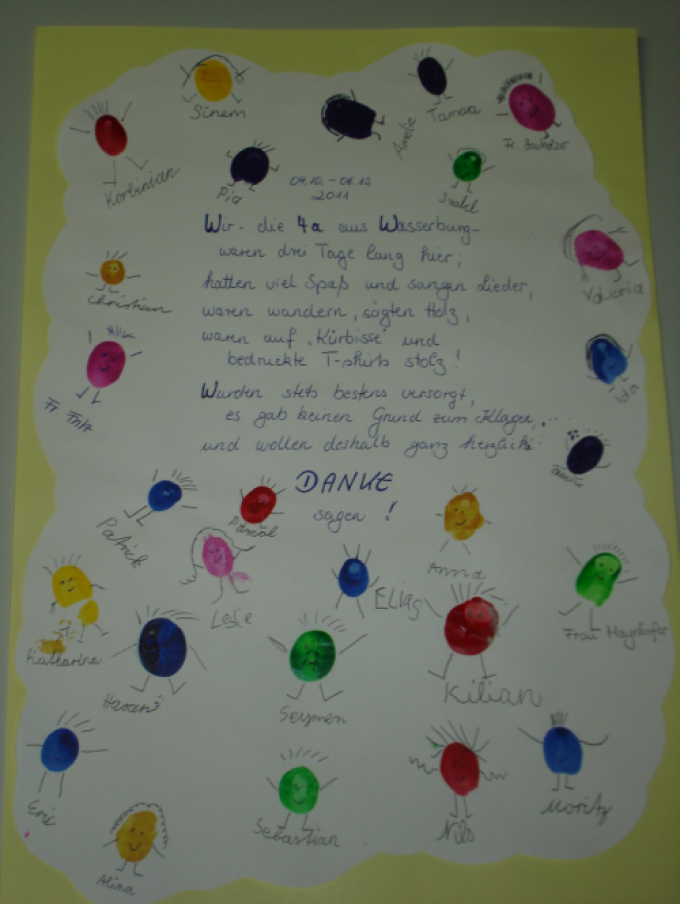 Sinem
Tamara
Amelie
Fr. Bauholzer
Korbinian
Pia
Isabel
04.10. - 06.10
2011
Wir - die 4a aus Wasserburg -
waren drei Tage lang hier;
hatten viel Spaß und sangen Lieder,
waren wandern, sägten Holz,
waren auf "Kürbisse" und
bedruckte T-Shirts stolz!
Wurden stets bestens versorgt,
es gab keinen Grund zum Klagen,...
und wollen deshalb ganz herzlich
DANKE
sagen!
Valeria
Christian
Fr
Ida
Patrick
Pascal
Anna
Leslie
Elias
Frau Mayrhofer
Katharina
Hasan
Seymen
Kilian
Eric
Sebastian
Nils
Moritz
Alina